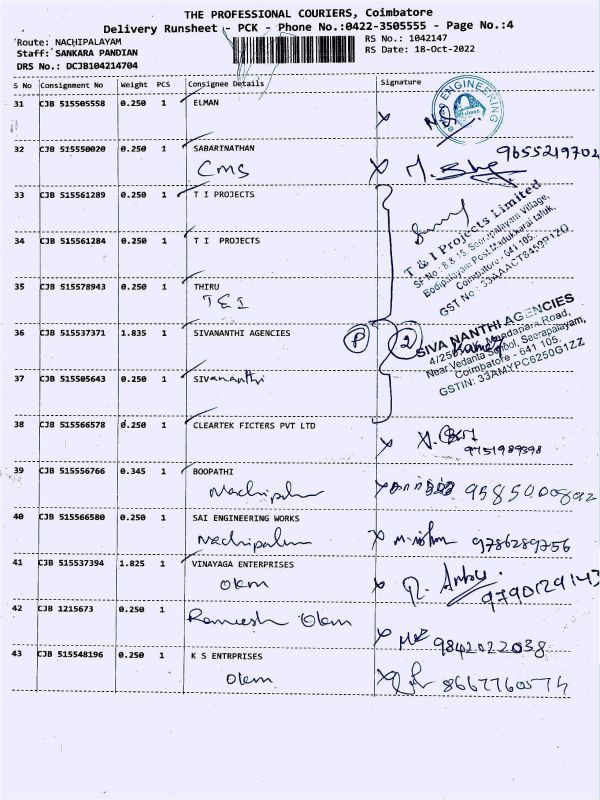 THE PROFESSIONAL COURIERS, Coimbatore
Delivery Runsheet - PCK - Phone No.:0422-3505555 - Page No.:4
Route: NACHIPALAYAM
RS No.: 1042147
Staff: SANKARA PANDIAN
RS Date: 18-Oct-2022
DRS No.: DCJB104214704
S No Consignment No Weight PCS Consignee Details Signature
31 CJB 515505558 0.250 1 ELMAN
ENGINEERING
32 CJB 515550020 0.250 1 SABARINATHAN
CMS
9655219702
33 CJB 515561289 0.250 1 T I PROJECTS
T & I Projects Limited
SF No : 8,8,15, Seerapalayam Village,
Bodipalayam Post, Madukkarai taluk,
Coimbatore - 641 105.
34 CJB 515561284 0.250 1 T I PROJECTS
35 CJB 515578943 0.250 1 THIRU
T & I
36 CJB 515537371 1.835 1 SIVANANTHI AGENCIES
P 2
SIVA NANTHI AGENCIES
Near Vedanta School, Seerapalayam,
Coimbatore - 641 105.
GSTIN: 33AMYPC6250G1ZZ
37 CJB 515505643 0.250 1 SIVananthi
38 CJB 515566578 0.250 1 CLEARTEK FICTERS PVT LTD
9751989398
39 CJB 515556766 0.345 1 BOOPATHI
Nachipalm
40 CJB 515566580 0.250 1 SAI ENGINEERING WORKS
Nachipalm
9786289756
41 CJB 515537394 1.825 1 VINAYAGA ENTERPRISES
Okm
9790129143
42 CJB 1215673 0.250 1 Ramesh Okm
9842022038
43 CJB 515548196 0.250 1 K S ENTRPRISES
Okm
8667760574